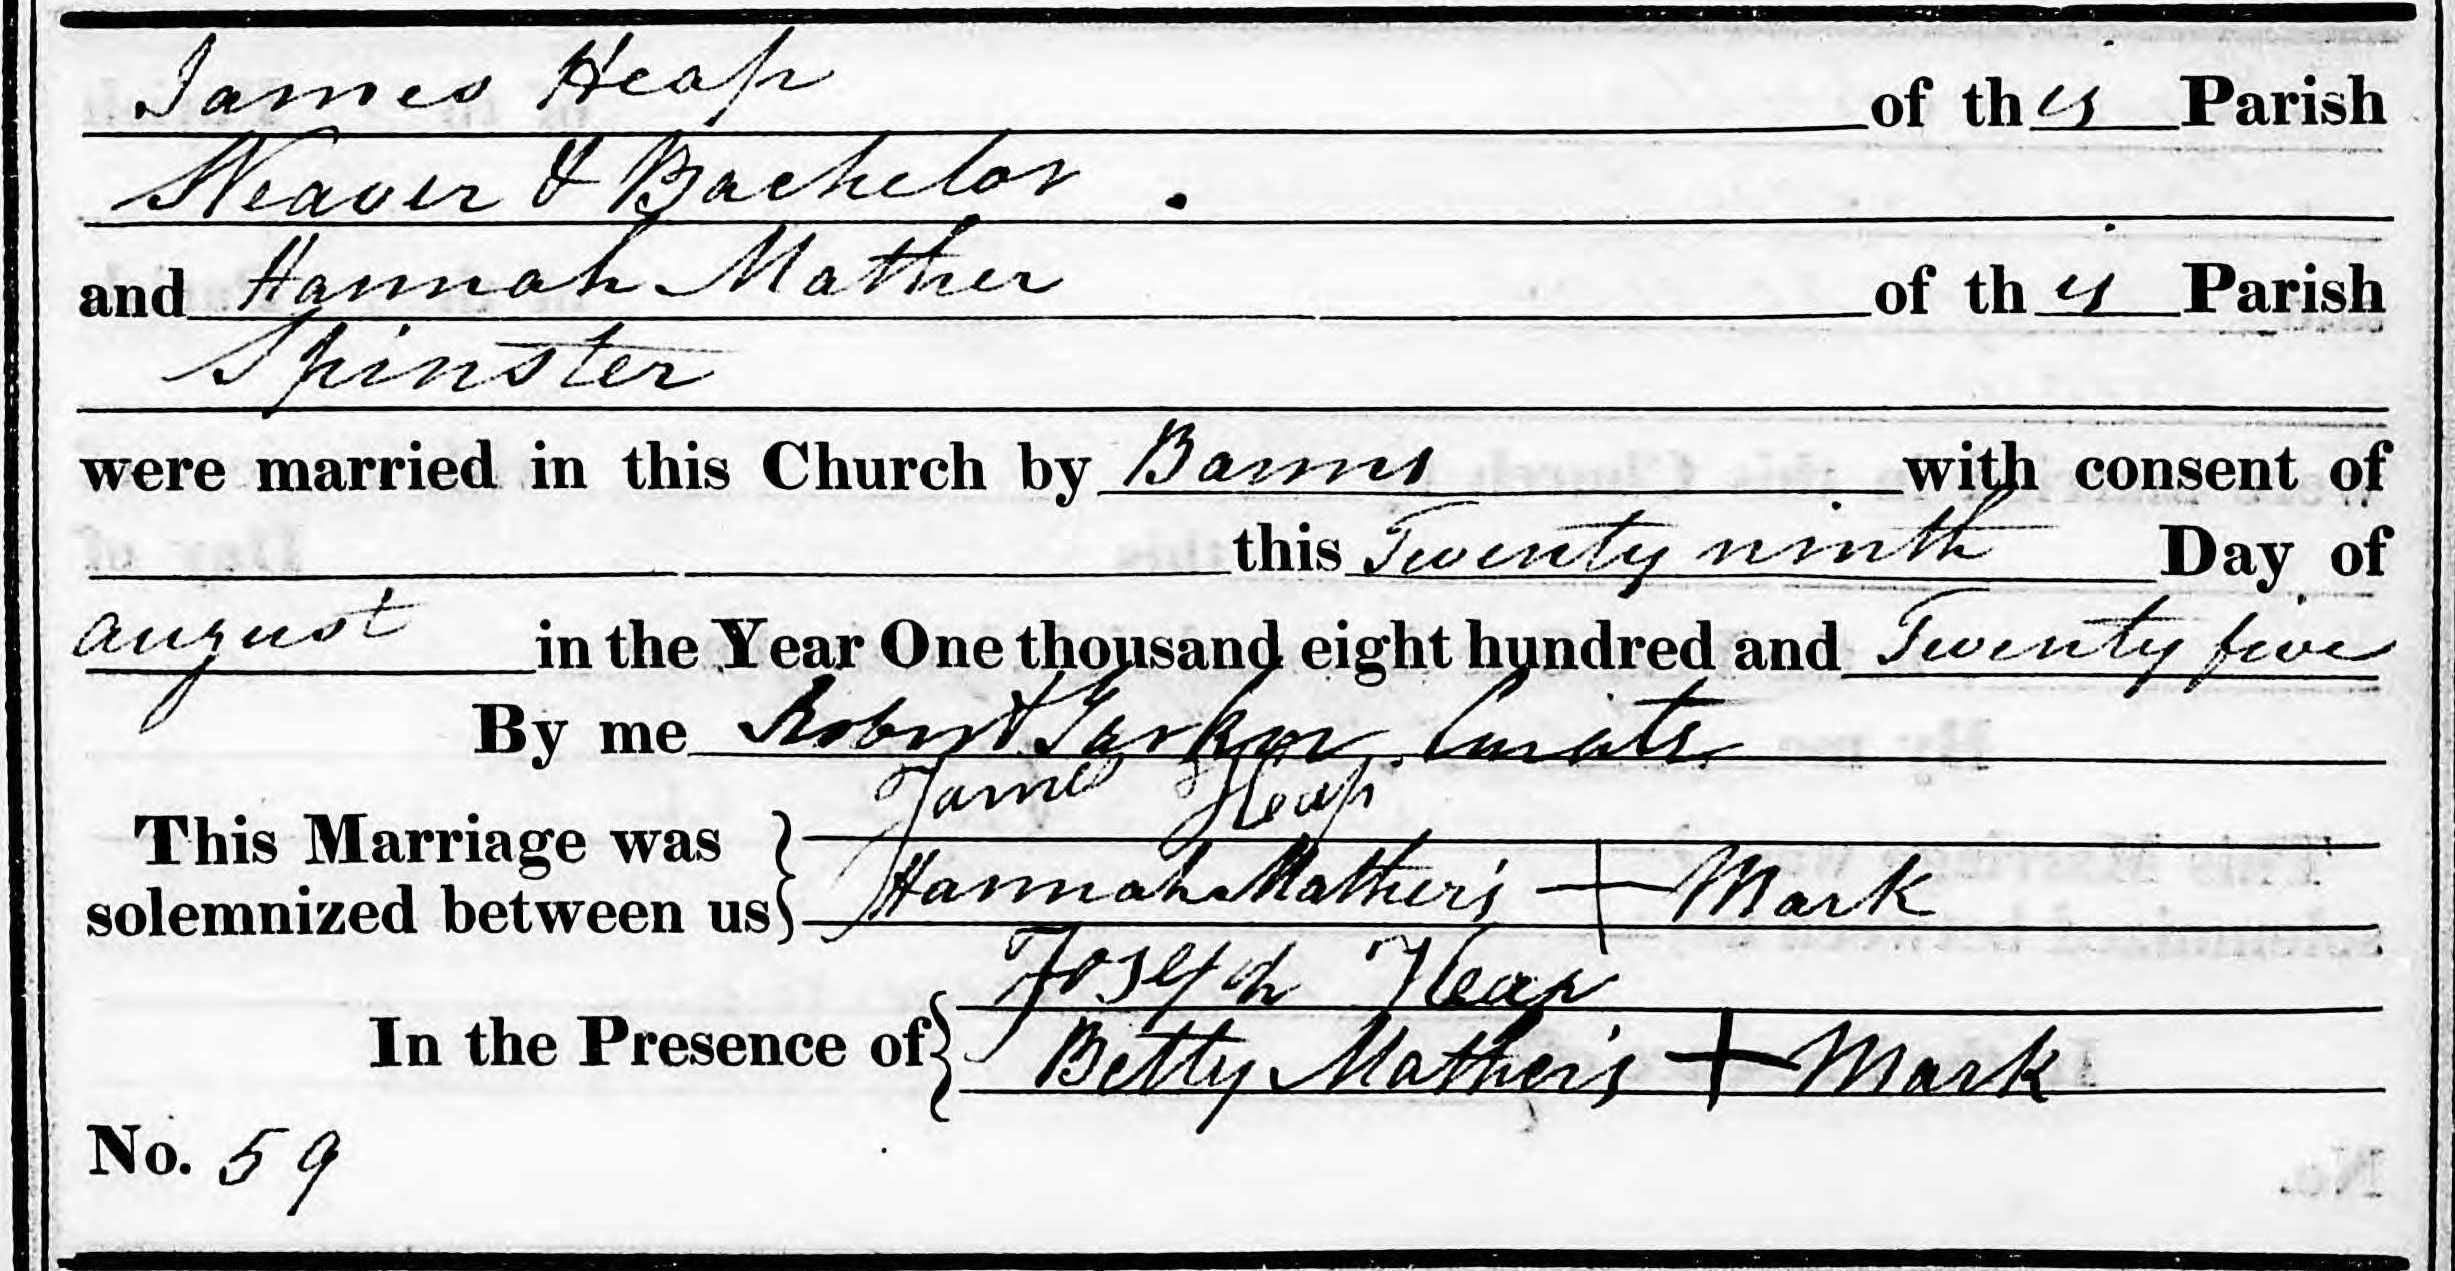 James Heap of this Parish
Weaver & Bachelor .
and Hannah Mather of this Parish
Spinster
were married in this Church by Banns with consent of
this Twenty ninth Day of
august in the Year One thousand eight hundred and Twenty five
By me Robert Parker Curate
James Heap
This Marriage was
solemnized between us Hannah Mather's + Mark
Joseph Heap
In the Presence of Betty Mather's + Mark
No. 59